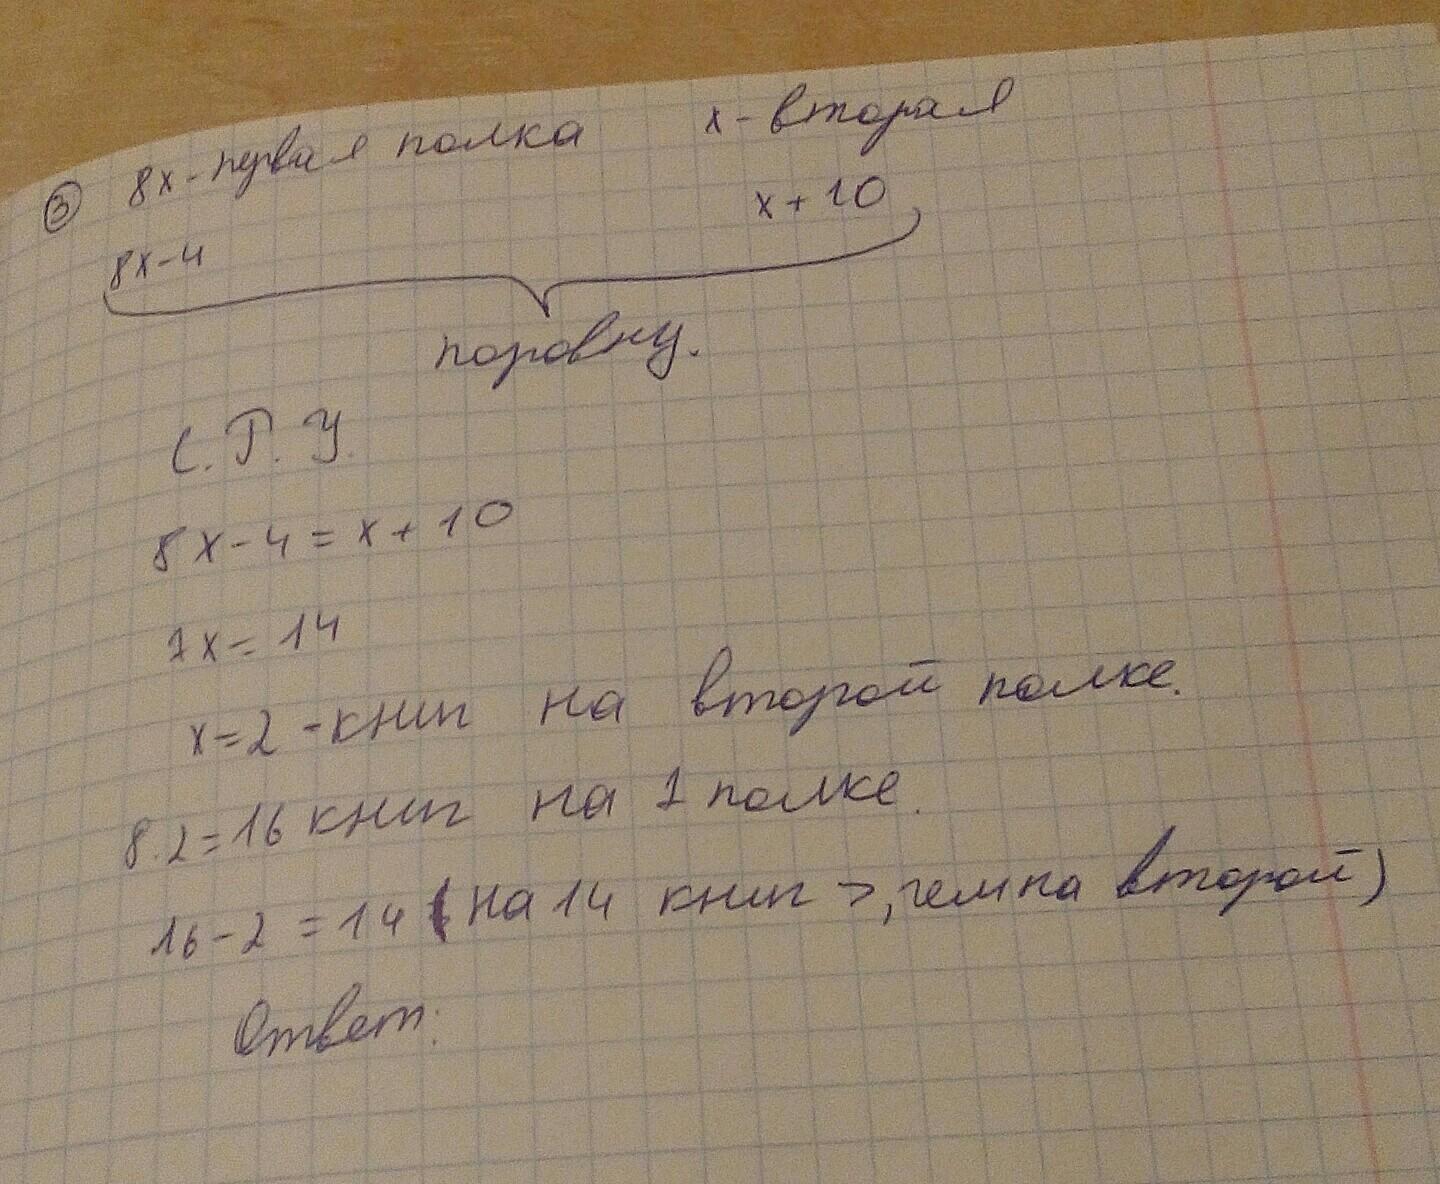 ③ 8х - первая полка х - вторая
8х-4 х+10
поровну.
С.Р.У.
8х-4=х+10
7х=14
х=2 - книг на второй полке.
8·2=16 книг на 1 полке.
16-2=14 (на 14 книг >, чем на второй)
Ответ: